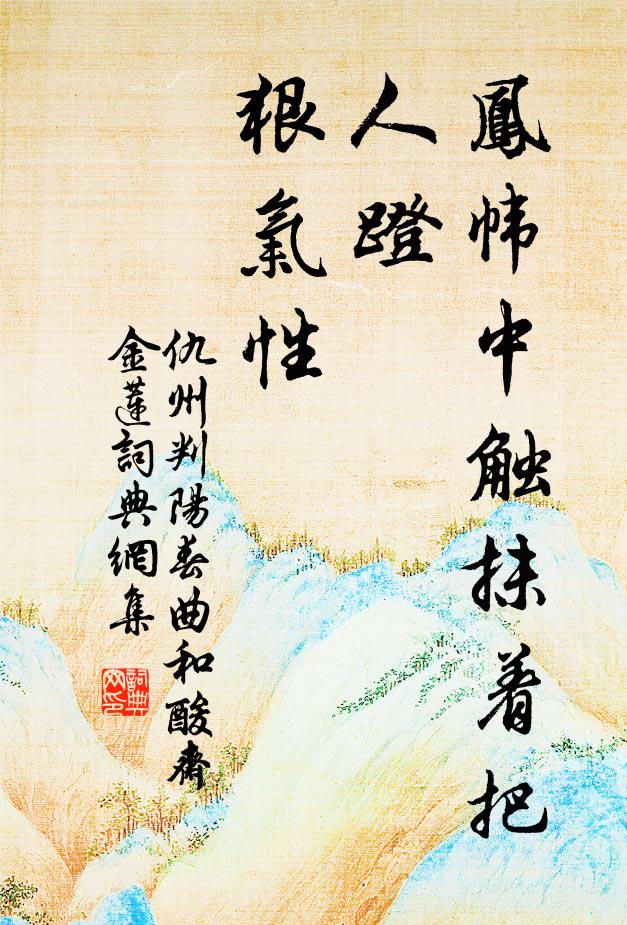 鳳帏中触抹着把
人蹬
狠氣性
仇州判陽春曲和酸齋
金蓮詞典網集
詞典
网印